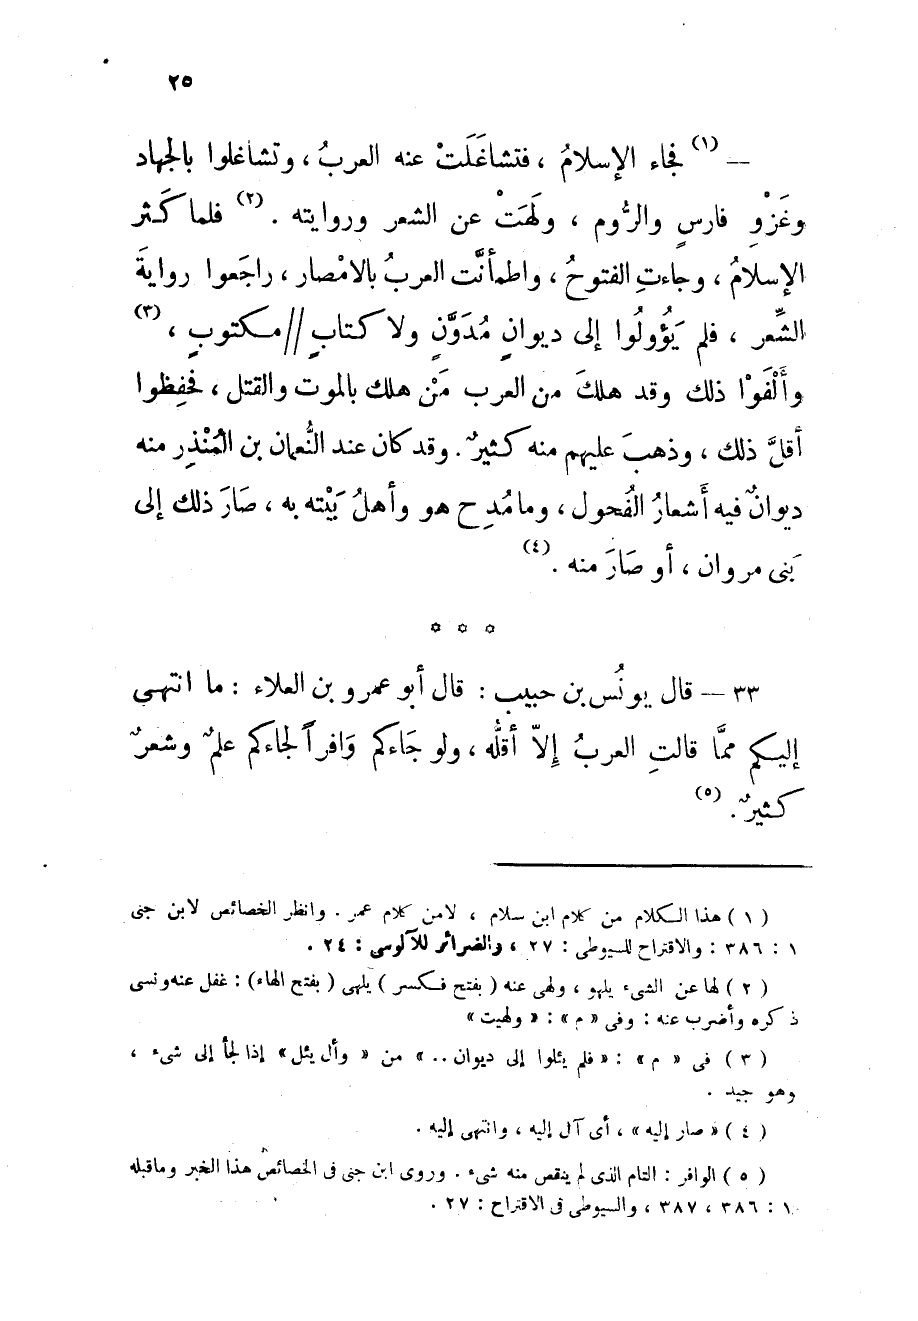 ٢٥
— (١) فجاء الإسلامُ ، فتشاغَلَتْ عنه العربُ ، وتشاغلوا بالجهاد
وغَزْوِ فارسٍ والرُّوم ، ولَهَتْ عن الشعر وروايته . (٢) فلما كَثر
الإسلامُ ، وجاءتِ الفتوحُ ، واطمأنَّت العربُ بالامْصار ، راجَعوا روايةَ
الشِّعر ، فلم يَؤُولُوا إلى ديوانٍ مُدَوَّنٍ ولا كتابٍ // مكتوبٍ ، (٣)
وأَلْفَوْا ذلك وقد هلكَ من العرب مَنْ هلك بالموت والقتل ، فحَفِظوا
أقلَّ ذلك ، وذهبَ عليهم منه كثيرٌ . وقد كان عند النُّعمان بن المُنْذِر منه
ديوانٌ فيه أَشعارُ الفُحول ، وما مُدِح هو وأهلُ بَيْته به ، صَارَ ذلك إلى
بَنى مروان ، أو صَارَ منه . (٤)
✡ ✡ ✡
٣٣ — قال يونُس بن حبيب : قال أبو عمرو بن العلاء : ما انتهى
إليكم ممَّا قالتِ العربُ إِلاّ أقلُّه ، ولو جَاءكم وَافراً لجاءكم علمٌ وشعرٌ
كثيرٌ . (٥)
( ١ ) هذا الكلام من كلام ابن سلام ، لامن كلام عمر . وانظر الخصائص لابن جنى
١ : ٣٨٦ : والاقتراح للسيوطى : ٢٧ ، والضرائر للآلوسى : ٢٤ .
( ٢ ) لها عن الشىء يلهو ، ولهى عنه ( بفتح فكسر ) يلهى ( بفتح الهاء ) : غفل عنه ونسى
ذكره وأضرب عنه : وفى « م » : « ولهيت »
( ٣ ) فى « م » : « فلم يئلوا إلى ديوان .. » من « وأل يئل » إذا لجأ إلى شىء ،
وهو جيد .
( ٤ ) « صار إليه » ، أى آل إليه ، وانتهى إليه .
( ٥ ) الوافر : التام الذى لم ينقص منه شىء . وروى ابن جنى فى الخصائص هذا الخبر وماقبله
١ : ٣٨٦ ، ٣٨٧ ، والسيوطى فى الاقتراح : ٢٧ .